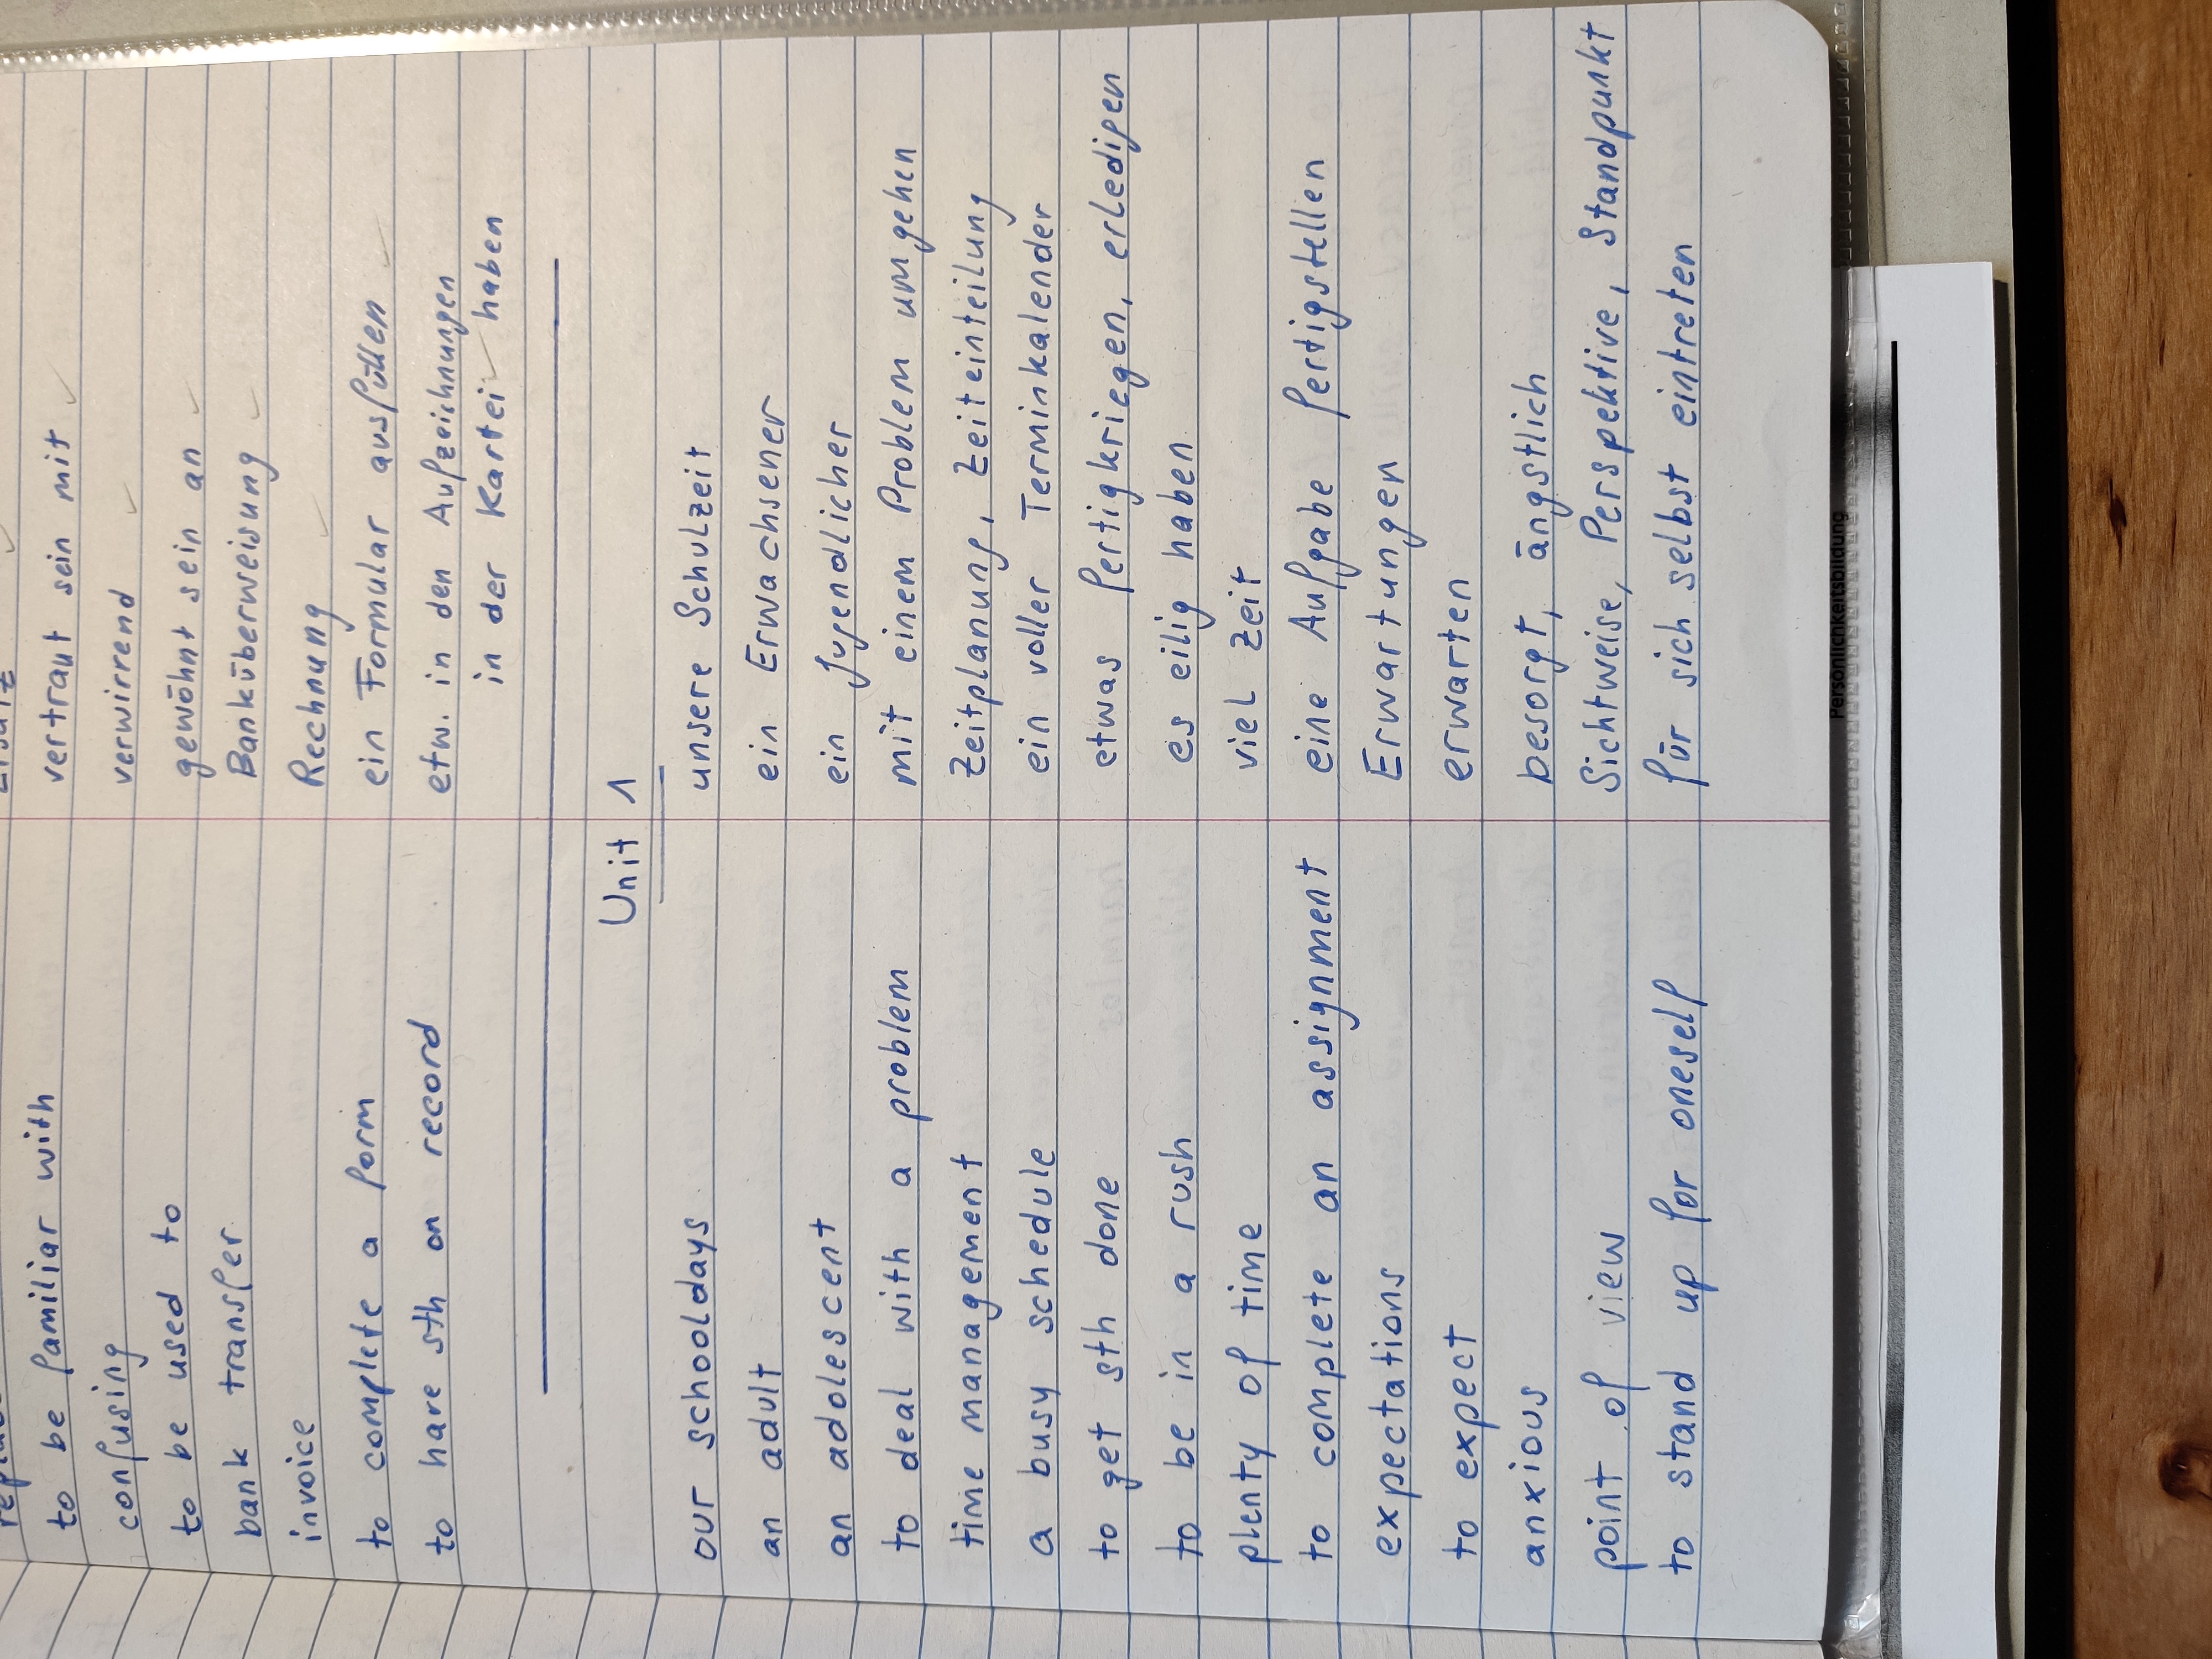 to be familiar with vertraut sein mit ✓
confusing verwirrend ✓
to be used to gewöhnt sein an ✓
bank transfer Banküberweisung ✓
invoice Rechnung ✓
to complete a form ein Formular ausfüllen ✓
to have sth on record etw. in den Aufzeichnungen
in der Kartei ✓ haben
Unit 1
our schooldays unsere Schulzeit
an adult ein Erwachsener
an adolescent ein Jugendlicher
to deal with a problem mit einem Problem umgehen
time management Zeitplanung, Zeiteinteilung
a busy schedule ein voller Terminkalender
to get sth done etwas fertigkriegen, erledigen
to be in a rush es eilig haben
plenty of time viel Zeit
to complete an assignment eine Aufgabe fertigstellen
expectations Erwartungen
to expect erwarten
anxious besorgt, ängstlich
point of view Sichtweise, Perspektive, Standpunkt
to stand up for oneself für sich selbst eintreten
Persönlichkeitsbildung